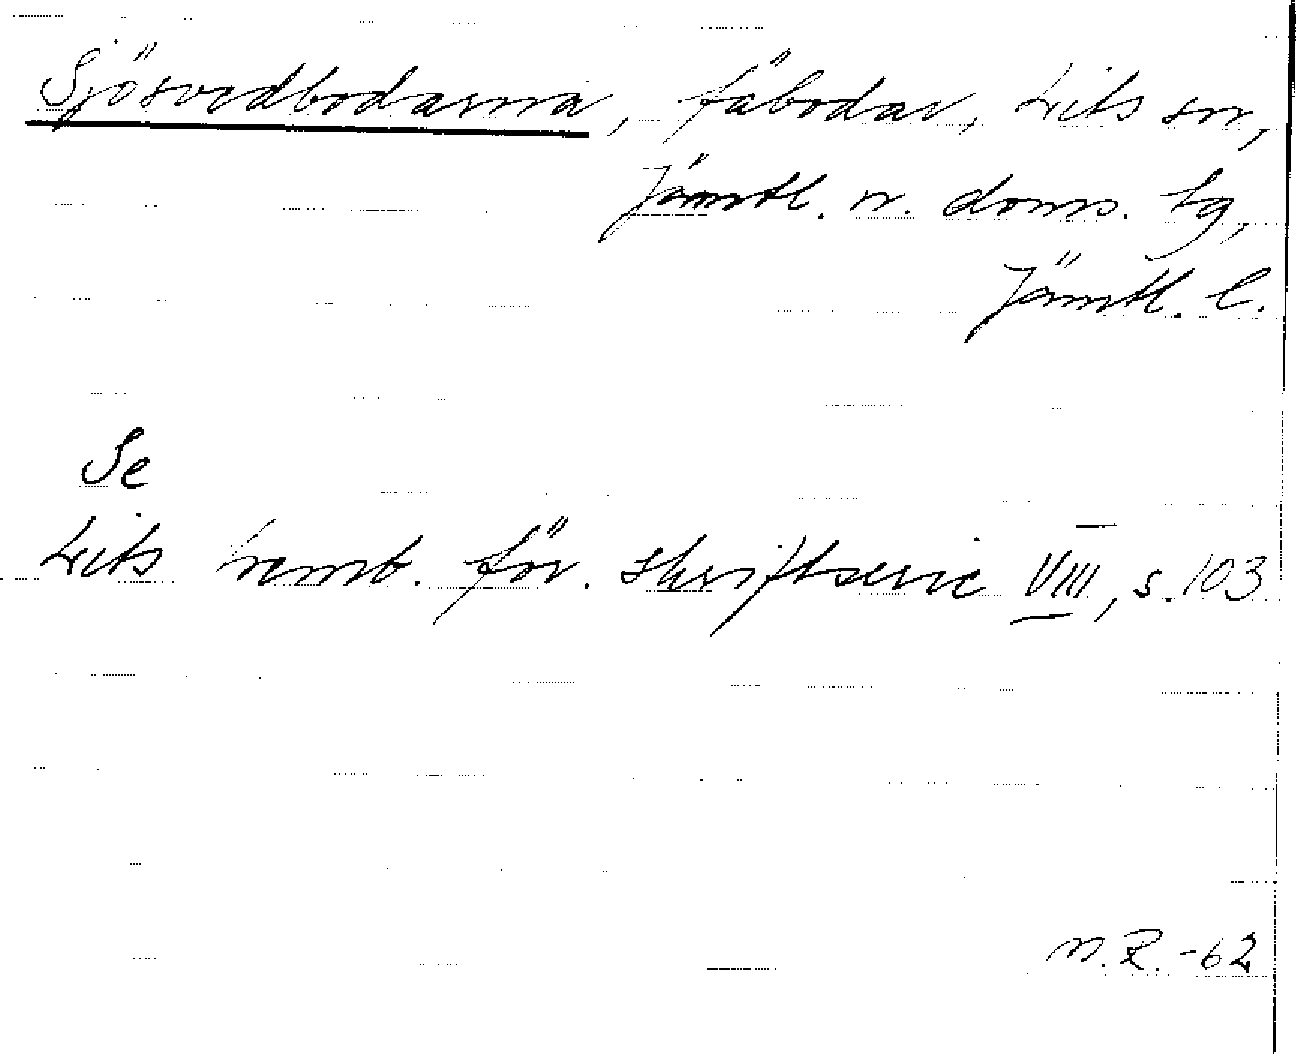 Sjösvedbodarna, fäbodar, Lits sn,
Jämtl. n. doms. tg,
Jämtl. l.
Se
Lits hemb. för. skriftserie VIII, s. 103
M.R. -62